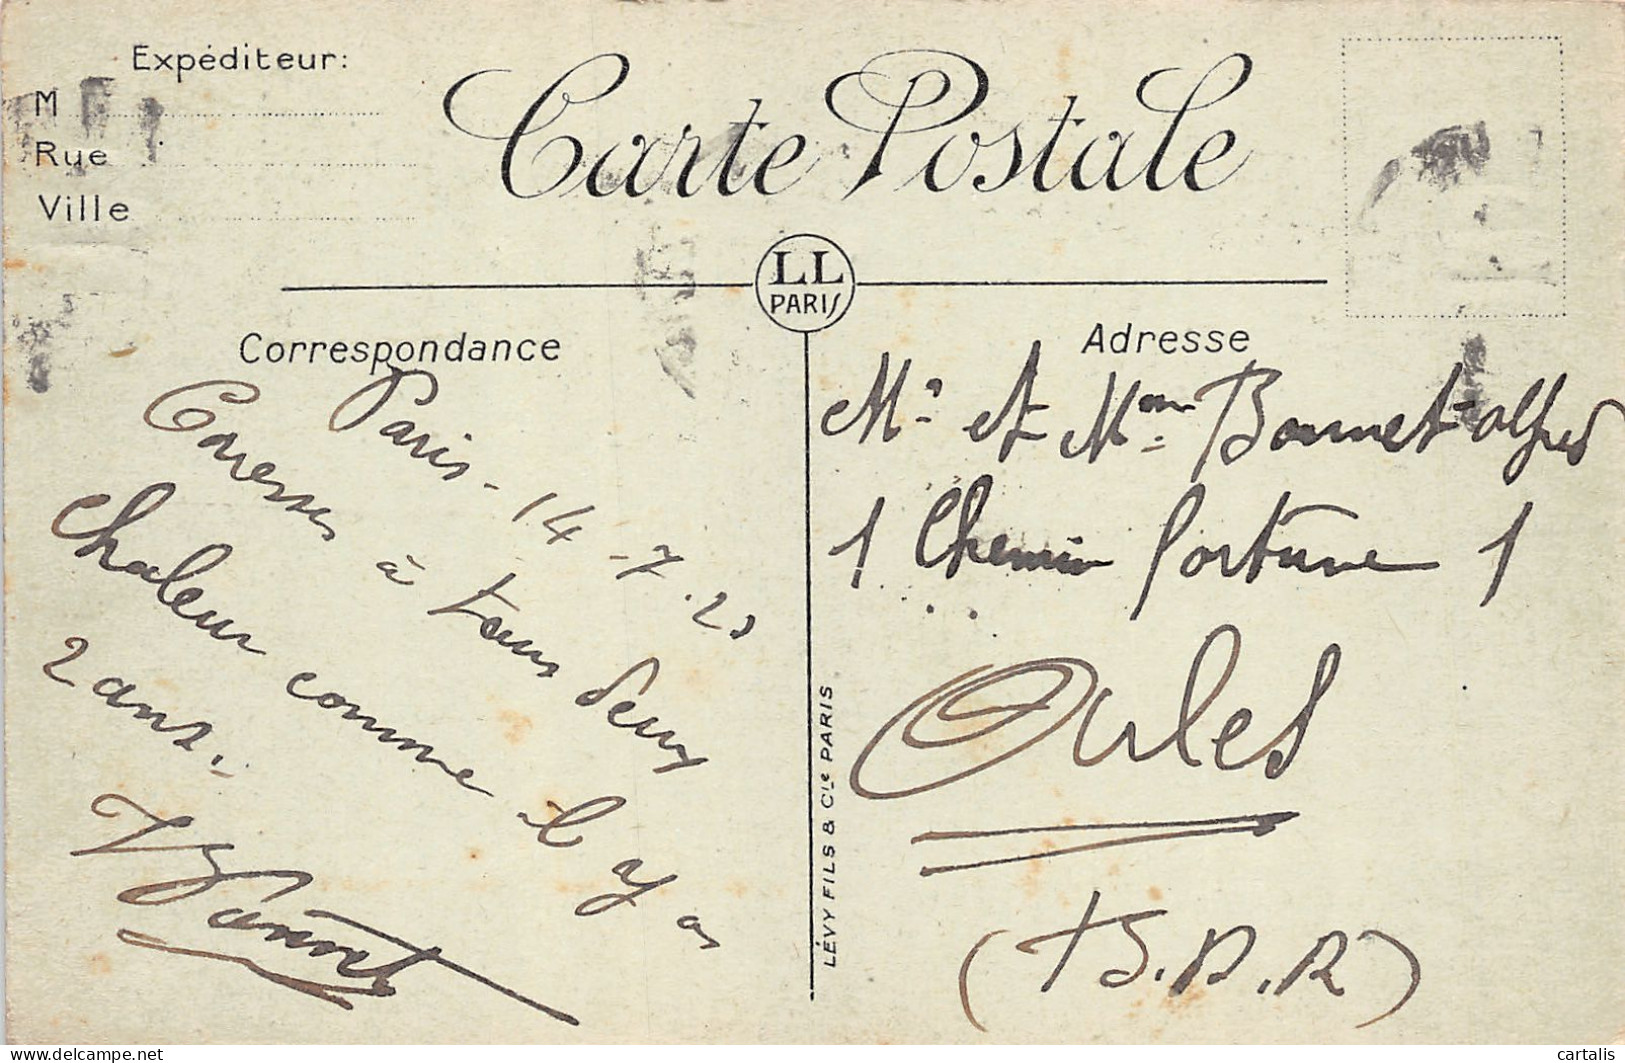 Expéditeur:
M
Rue
Ville
Carte Postale
LL
PARIS
Correspondance
Adresse
Paris - 14 - 7. 23
Caresses à tous deux
chaleur comme il y a
2 ans.
Bonnet
Mr et Mme Bonnet-Alfred
1 Chemin fortune 1
Arles
(B.D.R)
LÉVY FILS & Cie PARIS
cartalis
delcampe.net